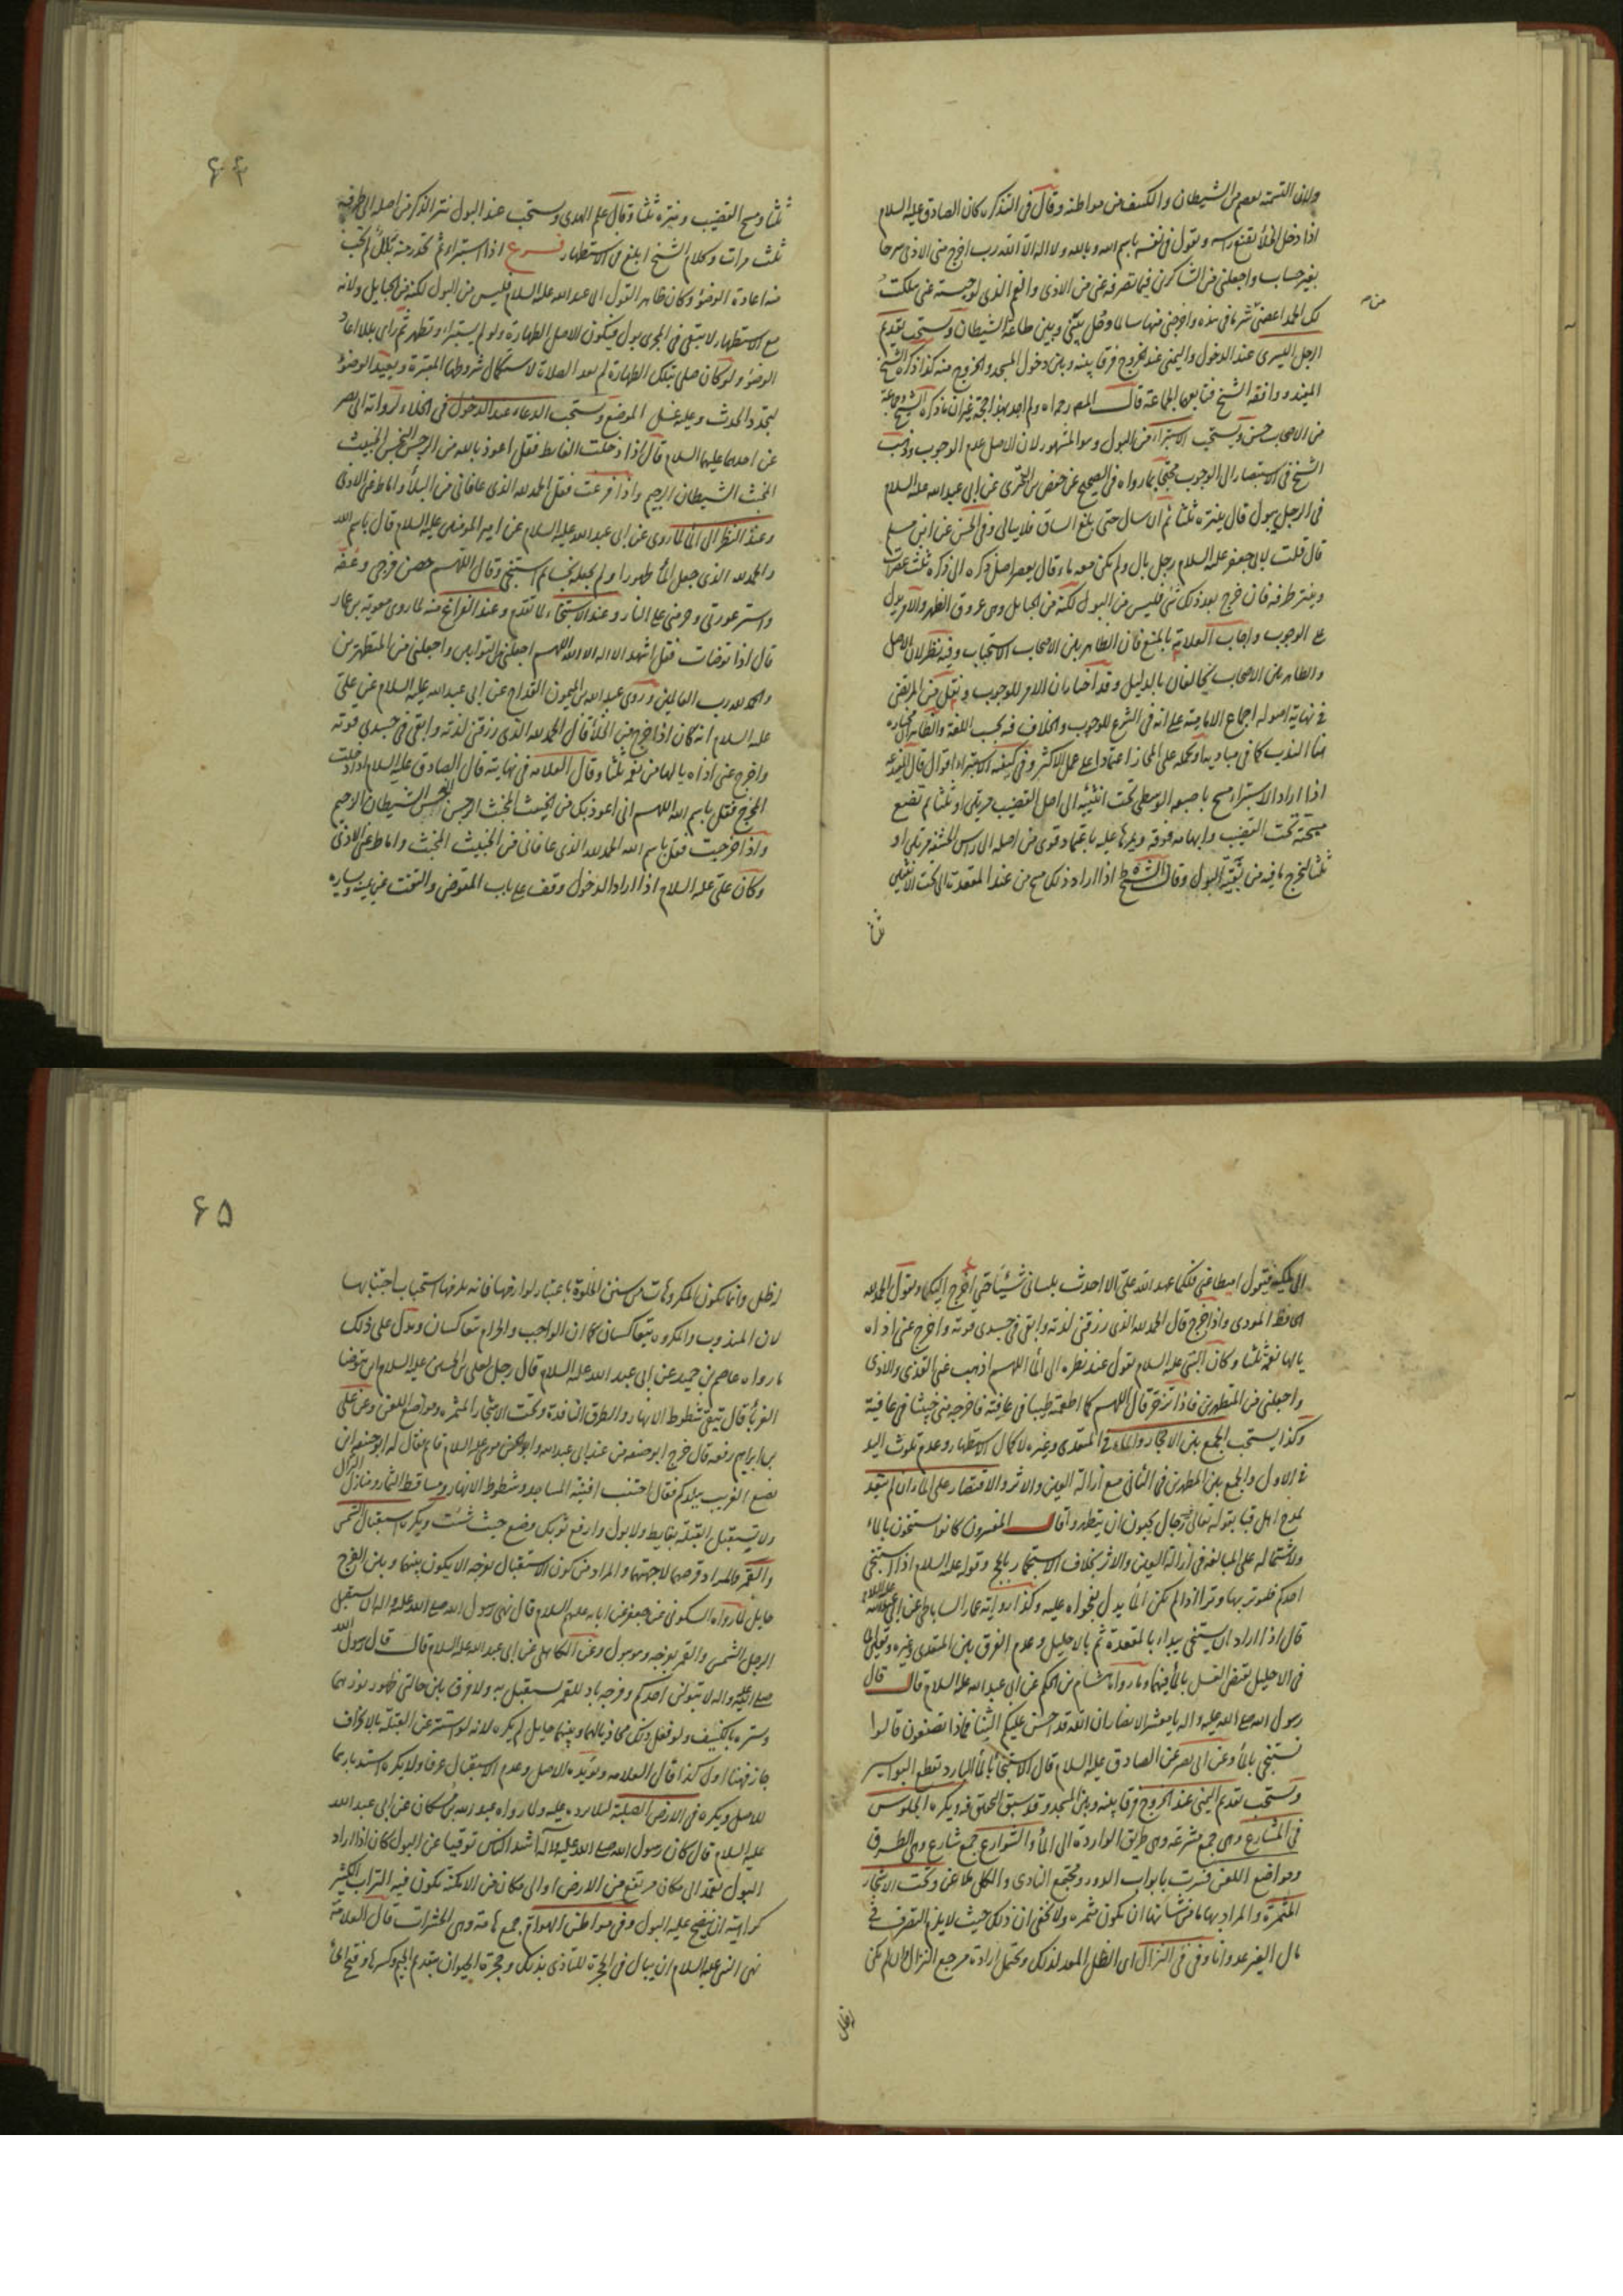 ولان التسمية يعصم من الشيطان والكشف من مواطنه وقال في التذكره كان الصادق عليه السلام
اذا دخل الخلا يقنع راسه ويقول في نفسه باسم الله وبالله ولا اله الا الله رب اخرج مني الاذى سرحا
بغير حساب واجعلني من الشاكرين فيما تصرفه عني من الاذى والغم الذي لو حبسته عني هلكت
لك الحمد اعصمني من شر ما في هذه واخرجني منها سالما وحل بيني وبين طاعة الشيطان ويستحب تقديم
الرجل اليسرى عند الدخول واليمنى عند الخروج فرقا بينه وبين دخول المسجد والخروج منه كذا ذكره الشيخ
المفيد ووافقه الشيخ فتابعه الجماعة قال المصر رحمه الله ولم اجد بهذا حجة غير ان ما ذكره الشيخ وجماعة
من الاصحاب حسن ويستحب الاستبراء من البول وهو المشهور لان الاصل عدم الوجوب وذهب
الشيخ في الاستبصار الى الوجوب محتجا بما رواه في الصحيح عن حفص بن البختري عن ابي عبد الله عليه السلام
في الرجل يبول قال ينتره ثلثا ثم ان سال حتى يبلغ الساق فلا يبالي وفي الحسن عن ابن مسلم
قال قلت لابي جعفر عليه السلام رجل بال ولم يكن معه ماء قال يعصر اصل ذكره الى ذكره ثلث عصرات
وينتر طرفه فان خرج بعد ذلك شئ فليس من البول لكنه من الحبايل وهي عروق الظهر والامر يدل
على الوجوب واجاب العلامة بالمنع فان الظاهر بين الاصحاب الاستحباب وفيه نظر لان الاصل
والظاهر بين الاصحاب يخالفان بالدليل وقد اختار ان الامر للوجوب ونقل عن المرتضى
في نهاية اصوله اجماع الامامية على انه في الشرع للوجوب والخلاف فيه بحسب اللغة والظاهر ان مختاره
هنا الندب كما في مباديه او حمله على المجاز اعتمادا على عمل الاكثر وفي كيفية الاستبراء اقوال قال المفيد
اذا اراد الاستبراء مسح باصبعه الوسطى تحت انثييه الى اصل القضيب مرتين او ثلثا ثم تضع
مسبحته تحت القضيب وابهامه فوقه ويمرهما عليه باعتماد قوي من اصله الى راس الحشفة مرتين او
ثلثا ليخرج ما فيه من بقية البول وقال الشيخ اذا اراد ذلك مسح من عند المقعدة الى تحت الانثيين
ثلثا
۶۴
ثلثا ومسح القضيب وينتره ثلثا وقال علم الهدى ويستحب عند البول نتر الذكر من اصله الى طرفه
ثلث مرات وكلام الشيخ ابلغ في الاستظهار فرع اذا استبرا ثم تحدر منه بلل لم يجب
منه اعادة الوضوء وكان ظاهر القول ابي عبد الله عليه السلام فليس من البول لكنه من الحبايل ولانه
مع الاستظهار لا يبقى في المجرى بول فيكون الاصل الطهارة ولو لم يستبرا وتطهر ثم راى بللا اعاد
الوضوء ولو كان صلى بتلك الطهارة لم يعد الصلاة لاستكمال شروطها المعتبرة ويعيد الوضوء
لتجدد الحدث وعليه غسل الموضع ويستحب الدعاء عند الدخول في الخلاء لرواية ابي بصير
عن احدهما عليهما السلام قال اذا دخلت الغايط فقل اعوذ بالله من الرجس النجس الخبيث
المخبث الشيطان الرجيم واذا فرغت فقل الحمد لله الذي عافاني من البلاء واماط عني الاذى
وعند النظر الى الماء لما روى عن ابي عبد الله عليه السلام عن امير المومنين عليه السلام قال باسم الله
والحمد لله الذي جعل الماء طهورا ولم يجعله نجسا ثم استنجى وقال اللهم حصن فرجي وعفه
واستر عورتي وحرمني على النار وعند الاستنجاء لما تقدم وعند الفراغ منه لما روى معوية بن عمار
قال اذا توضات فقل اشهد ان لا اله الا الله اللهم اجعلني من التوابين واجعلني من المتطهرين
والحمد لله رب العالمين وروى عبد الله بن ميمون القداح عن ابي عبد الله عليه السلام عن علي
عليه السلام انه كان اذا خرج من الخلاء قال الحمد لله الذي رزقني لذته وابقى في جسدي قوته
واخرج عني اذاه يا لها من نعمة ثلثا وقال العلامه في نهايته قال الصادق عليه السلام اذا دخلت
المخرج فقل باسم الله اللهم اني اعوذ بك من الخبيث المخبث الرجس النجس الشيطان الرجيم
واذا خرجت فقل باسم الله الحمد لله الذي عافاني من الخبيث المخبث واماط عني الاذى
وكان علي عليه السلام اذا اراد الدخول وقف على باب المتوضئ والتفت عن يمينه ويساره
الى ملكيه فيقول اميطا عني فلكما عهد الله علي الا احدث بلساني شيئا حتى اخرج اليكما ويقول الحمد لله
الحافظ المؤدي واذا خرج قال الحمد لله الذي رزقني لذته وابقى في جسدي قوته واخرج عني اذاه
يا لها نعمة ثلثا وكان النبي عليه السلام يقول عند نظره الى الماء اللهم اذهب عني القذى والاذى
واجعلني من المتطهرين فاذا تزحر قال اللهم كما اطعمته طيبا في عافية فاخرجه مني خبيثا في عافية
وكذا يستحب الجمع بين الاحجار والماء في المتعدي وغيره لاكمال الاستظهار وعدم تلوث اليد
في الاول والجمع بين المطهرين في الثاني مع ازالة العين والاثر والاقتصار على الماء ان لم يتعد
لمدح اهل قبا بقوله تعالى رجال يحبون ان يتطهروا قال المفسرون كانوا يستنجون بالماء
ولاشتماله على المبالغة في ازالة العين والاثر بخلاف الاستجمار بالحج وقوله عليه السلام اذا استنجى
احدكم فليوتر بها وترا اذا لم يكن الماء يدل بفحواه عليه وكذا رواية عمار الساباطي عن ابي عبد الله عليه السلام
قال اذا اراد ان يستنجي يبداء بالمقعدة ثم بالاحليل وعدم الفرق بين المتعدي وغيره وتعين الماء
في الاحليل يقتضي الغسل بالماء فيهما وما رواه هشام بن الحكم عن ابي عبد الله عليه السلام قال قال
رسول الله صلى الله عليه واله يا معشر الانصار ان الله قد احسن عليكم الثناء فماذا تصنعون قالوا
نستنجي بالماء وعن ابي بصير عن الصادق عليه السلام قال الاستنجاء بالماء البارد يقطع البواسير
ويستحب تقديم اليمنى عند الخروج فرقا بينه وبين المسجد وقد سبق المحقق فيه ويكره الجلوس
في المشارع وهي جمع مشرعة وهي طريق الواردة الى الماء والشوارع جمع شارع وهي الطرق
ومواضع اللعن فسرت بابواب الدور ومجتمع النادي والكل ملاعن وتحت الاشجار
المثمرة والمراد بها ما من شانها ان يكون مثمره ولا يخفى ان ذلك حيث لا يلزم التصرف في
مال الغير عدوانا وفي فئ النزال اي الظل المعد لذلك ويحتمل ارادة مرجع النزال وان لم يكن
ذظل
۶۵
ذظل وانما يكون المكروهات من سنن الخلوة باعتبار لوازمها فانه يلزمها استحباب اجتنابها
لان المندوب والمكروه يتعاكسان كما ان الواجب والحرام يتعاكسان ويدل على ذلك
ما رواه عاصم بن حميد عن ابي عبد الله عليه السلام قال رجل لعلي بن الحسين عليه السلام اين يتوضا
الغرباء قال يتقي شطوط الانهار والطرق النافذة وتحت الاشجار المثمره ومواضع اللعن وعن علي
بن ابراهيم رفعه قال خرج ابو حنيفه من عند ابي عبد الله وابو الحسن موسى عليه السلام قائم فقال له ابو حنيفه اين
يضع الغريب ببلدكم فقال اجتنب افنية المساجد وشطوط الانهار ومساقط الثمار ومنازل النزال
ولا يستقبل القبلة بغايط ولا بول وارفع ثوبك وضع حيث شئت ويكره استقبال الشمس
والقمر والمراد قرصهما لا جهتهما والمراد من كون الاستقبال بوجه الا يكون بينهما وبين الفرج
حايل لما رواه السكوني عن جعفر عن ابايه عليهم السلام قال نهى رسول الله صلى الله عليه واله ان يستقبل
الرجل الشمس والقمر بفرجه وهو يبول وعن الكاهلي عن ابي عبد الله عليه السلام قال قال رسول الله
صلى الله عليه واله لا يبولن احدكم وفرجه باد للقمر يستقبل به ولا فرق بين حالتي ظهور نورهما
وستره بالكثيف ولو فعل ذلك محاذيا لهما وبينهما حايل لم يكره لانه لو استتر عن القبلة بالانحراف
جاز فهنا اولى كذا قال العلامه ويؤيده الاصل وعدم الاستقبال عرفا ولا يكره استدبارهما
للاصل ويكره في الارض الصلبة لئلا يرد عليه ولما رواه عبد الله بن مسكان عن ابي عبد الله
عليه السلام قال كان رسول الله صلى الله عليه واله اشد الناس توقيا عن البول كان اذا اراد
البول يعمد الى مكان مرتفع من الارض او الى مكان من الامكنة يكون فيه التراب الكثير
كراهية ان ينضح عليه البول وفي مواطن الهوام جمع هامة وهي الحشرات قال العلامة
نهى النبي عليه السلام ان يبال في الجحرة للتاذي بذلك وجحرة الحيوان بتقديم الجيم وكسرها وفتح الحاء